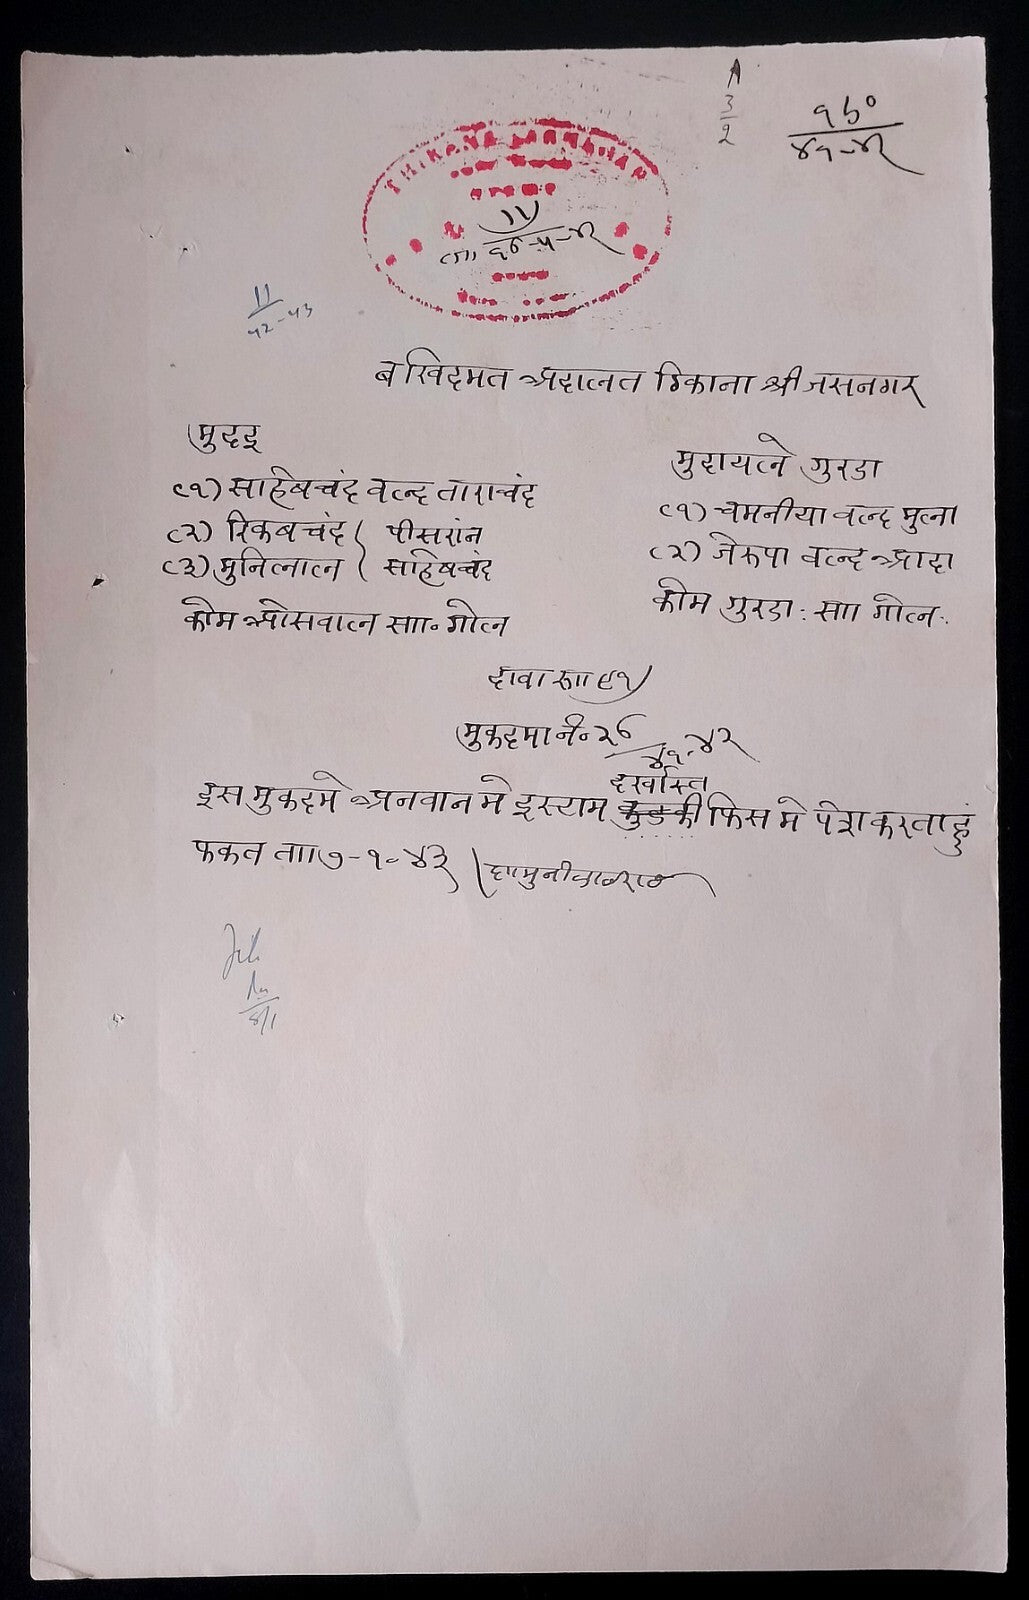 A
3
2
१७०
४१-४२
THIKANA JASNAGAR
11
ता १४-५-४२
11
42-43
ब खिदमत अदालत ठिकाना श्री जसनगर
मुदइ
(१) साहेबचंद वल्द ताराचंद
(२) रिकबचंद पीसरांन
(३) मुनिलाल साहेबचंद
कोम ओसवाल सा॰ गोल
मुदायले गुरडा
(१) चमनीया वल्द मुला
(२) जेरूपा वल्द आदा
कोम गुरडा: सा गोल.
दावा रू॥ ९१)
मुकदमा नं॰ २६
४१-४२
दरखास्त
इस मुकदमे अनवान मे इस्टाम कुडकी फिस मे पेश करता हुं
फकत ता॥ ७-१-४३